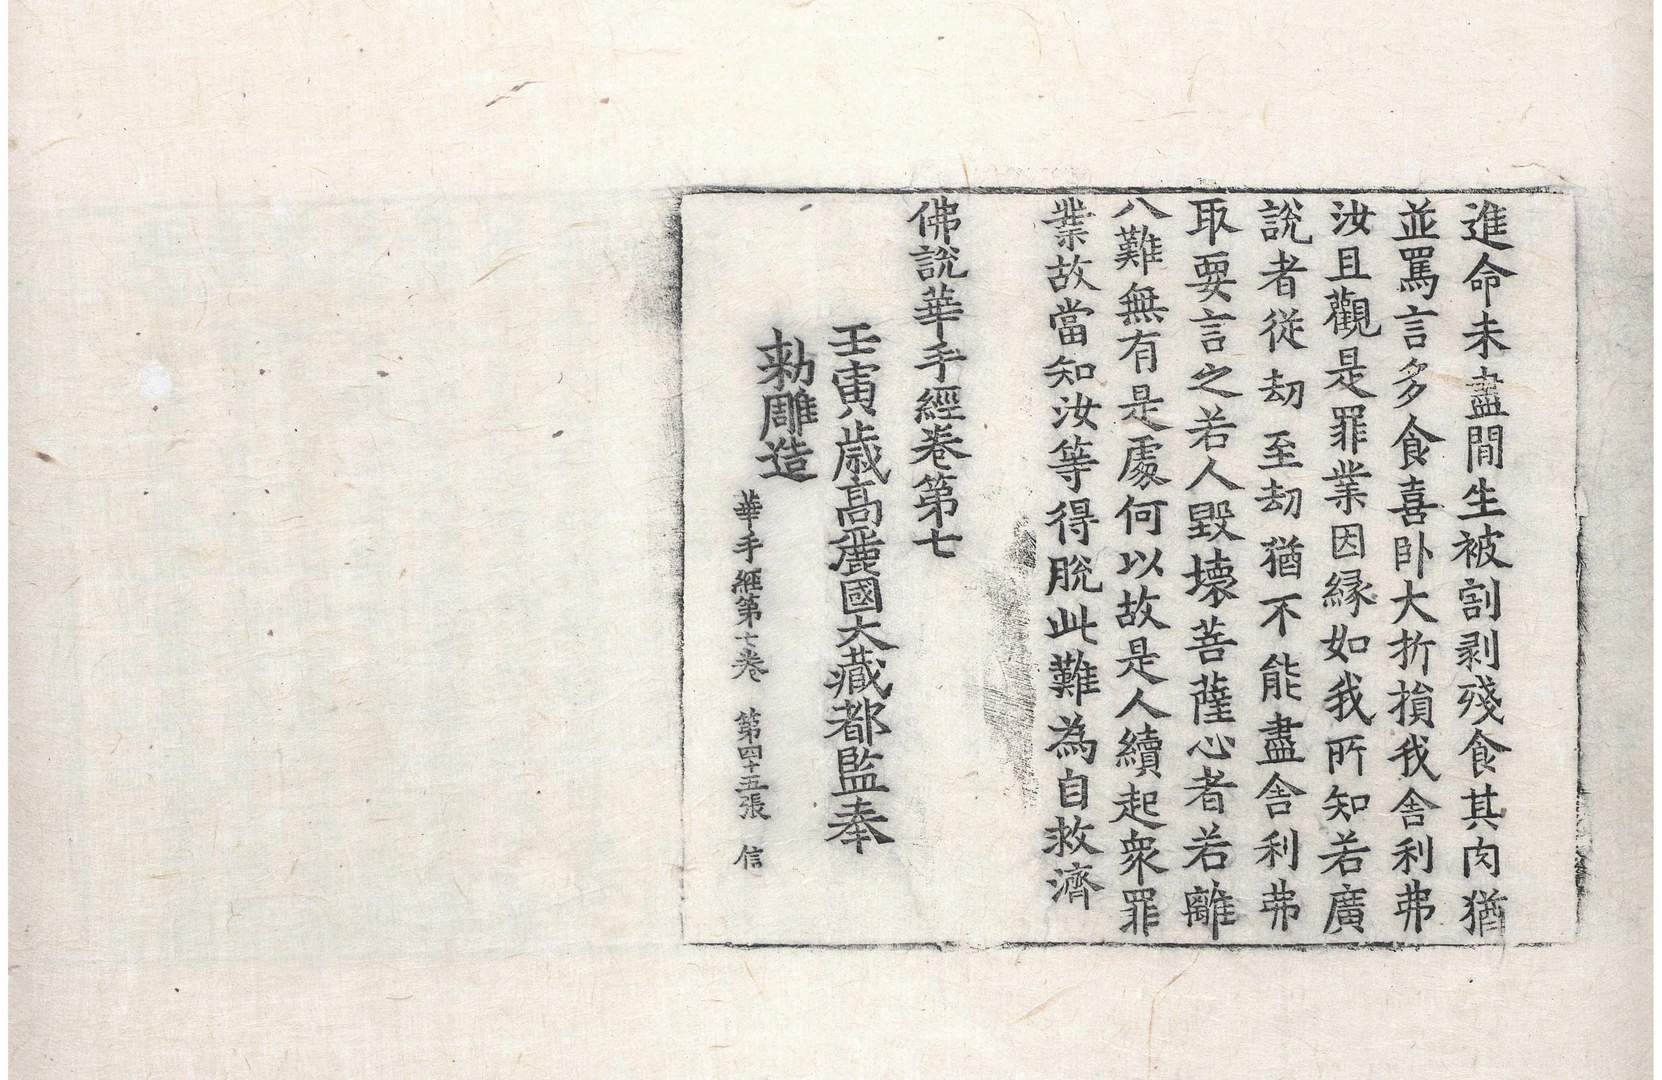 進命未盡間生被割剥殘食其肉猶
並罵言多食喜卧大折損我舎利弗
汝且觀是罪業因縁如我所知若廣
說者從劫至劫猶不能盡舎利弗
取要言之若人毀壞菩薩心者若離
八難無有是處何以故是人續起衆罪
業故當知汝等得脫此難為自救濟
佛說華手經卷第七
壬寅歳高麗國大藏都監奉
勅雕造
華手經第七卷　第四十五張　信